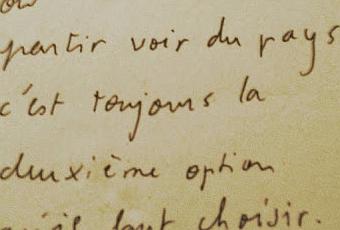 ou
partir voir du pays
c'est toujours la
deuxième option
qu'il faut choisir.